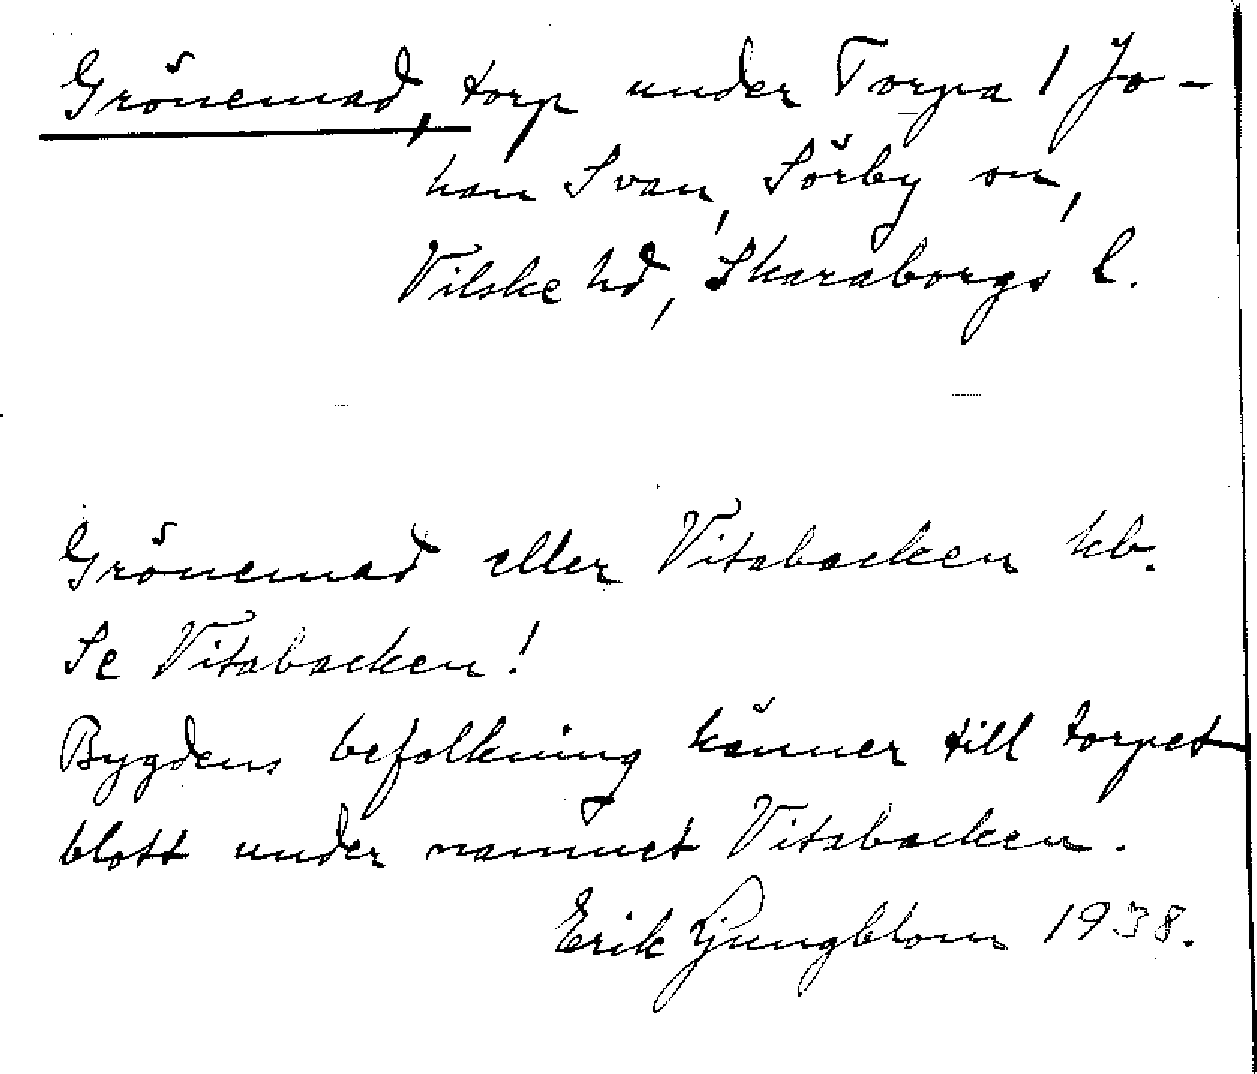 Grönemad, torp under Torpa 1 Jo-
han Svan, Sörby sn,
Vilske hd, Skaraborgs l.
Grönemad eller Vitabacken kb.
Se Vitabacken!
Bygdens befolkning känner till torpet
blott under namnet Vitabacken.
Erik Ljungblom 1938.